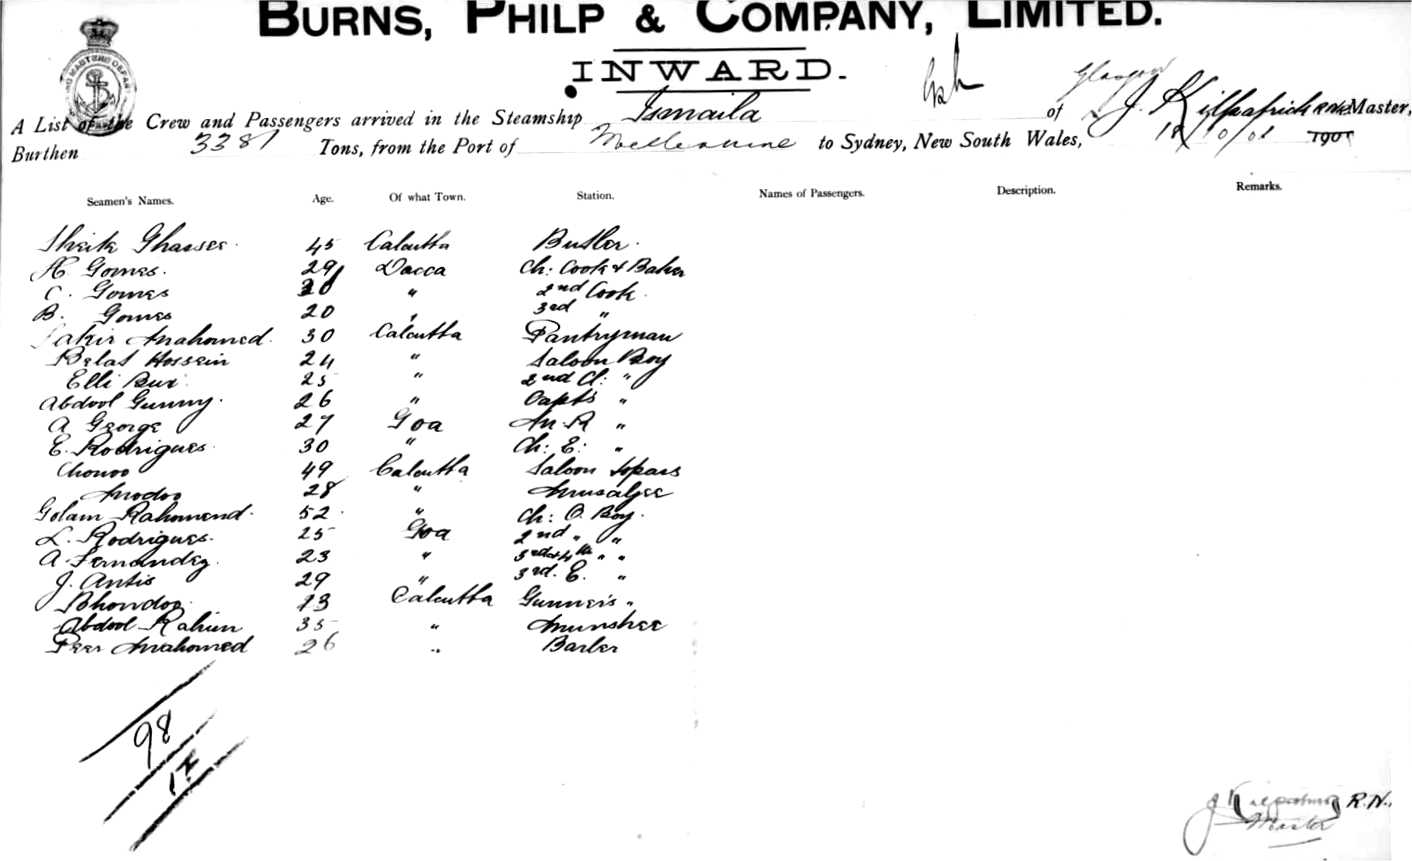 BURNS, PHILP & COMPANY, LIMITED.
INWARD.
Glasgow
A List of the Crew and Passengers arrived in the Steamship Ismaila of J. Kilpatrick R.N.R. Master,
Burthen 3381 Tons, from the Port of Melbourne to Sydney, New South Wales, 12/10/01 190
Seamen's Names. Age. Of what Town. Station. Names of Passengers. Description. Remarks.
Sheik 45 Calcutta Butler.
A Gomes. 29 Dacca Ch: Cook & Baker
C. Gomes 20 " 2nd Cook.
B. Gomes 20 " 3rd "
Fakir Mahomed. 30 Calcutta Pantryman
Belat Hossein 24 " Saloon Boy
Elli Bux. 25 " 2nd Cl: "
Abdool Gunny. 26 " Capt's "
A George 27 Goa "
E. Rodrigues. 30 " Ch: E: "
Chonoo 49 Calcutta Saloon Topass
Modoo 28 " Musalgee
Golam Rahomend. 52. " Ch: O. Boy.
L. Rodrigues. 25 Goa 2nd " "
A Fernandez. 23 " 3rd & 4th " "
J. Antis 29 " 3rd. E. "
Bhondoo. 13 Calcutta Gunner's "
Abdool Rahim 35 " Munshee
Peer Mahomed 26 " Barber
98
J Kilpatrick R.N.
Master